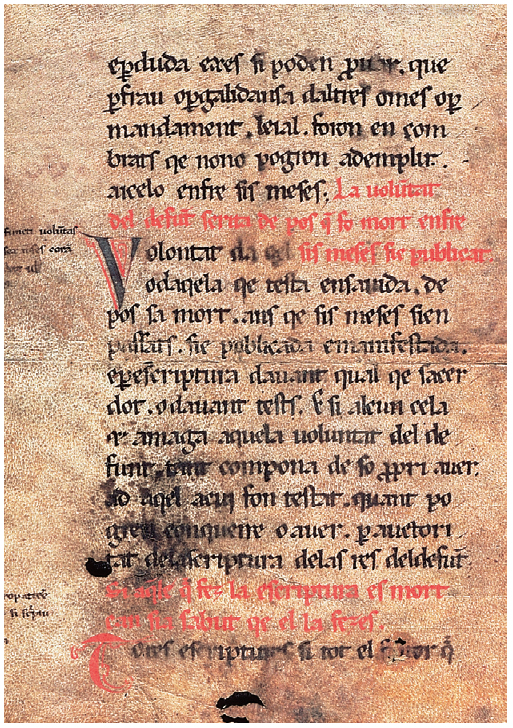 eperduda eres si poden prouar. que
perfrau o pergalidansa daltres omes o per
mandament. leial. foron en com
brats qe nono pogron ademplir.
aicelo enfre sis meses. La uolūtat
del defūt scrita de pos q̄ fo mort enfre
Volontat da qel sis meses sie publicat.
odaqela qe testa ensauida. de
pos sa mort. ans qe sis meses sien
passats. sie publicada emanifestada.
eperescriptura dauant qual qe sacer
dot. o dauant tests. E si alcun cela
er amaga aquela uoluntat del de
funt, tant compona de so propri auer.
ad aqel acui fon testat. quant po
gren conquerre o auer. per auctori
tat delascriptura delas res deldefūt.
Si aqle q̄ fez la escriptura es mort
can sia sabut qe el la fezes.
Totes escriptures si tot el q̄